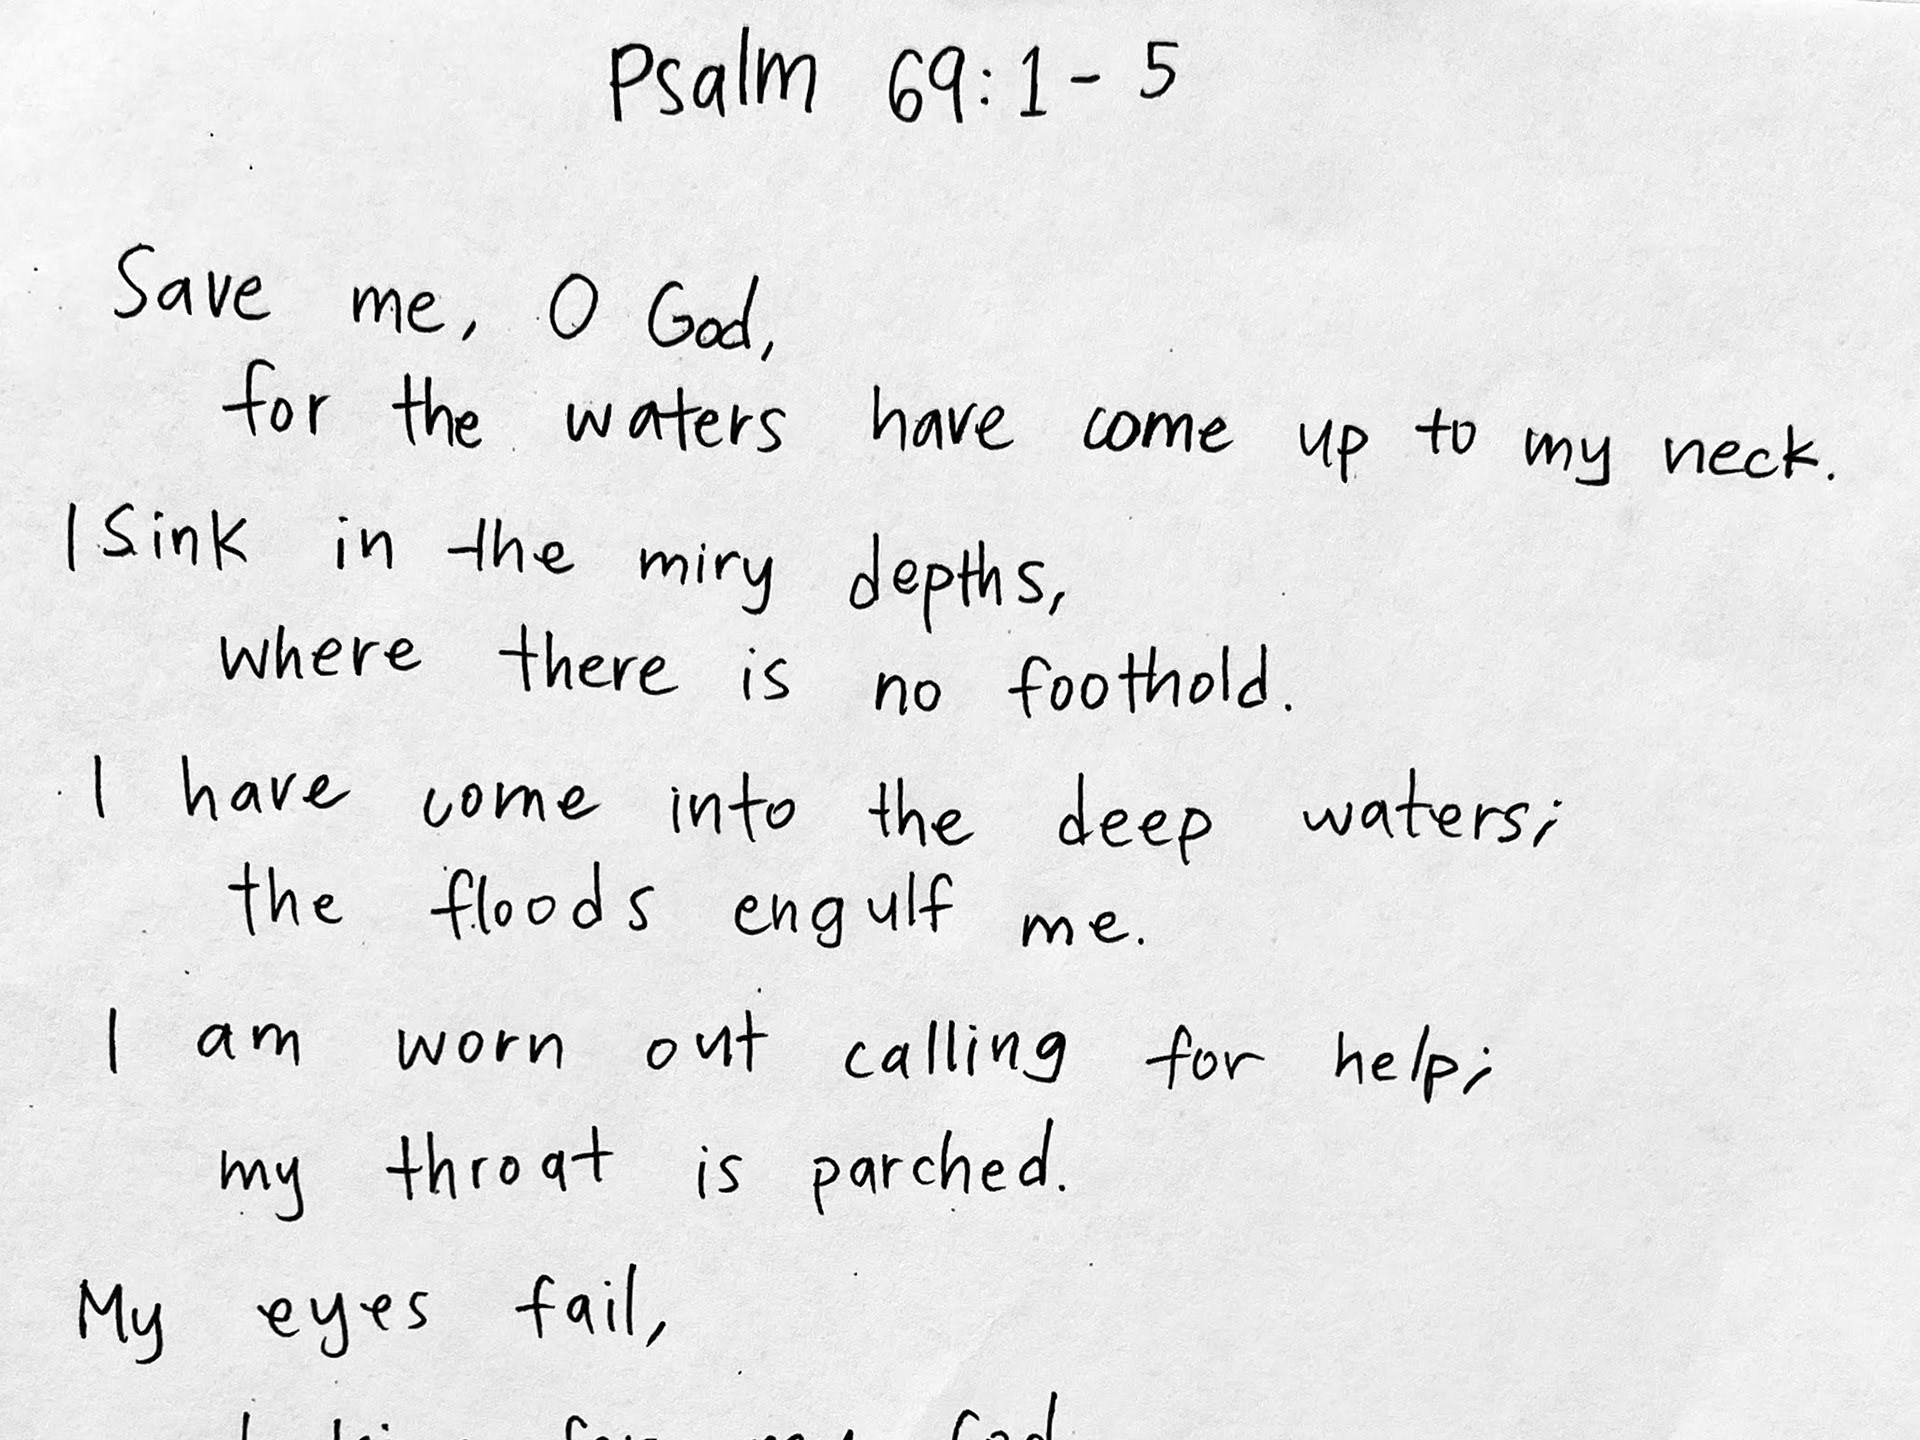 Psalm 69:1-5
Save me, O God,
for the waters have come up to my neck.
I Sink in the miry depths,
where there is no foothold.
I have come into the deep waters;
the floods engulf me.
I am worn out calling for help;
my throat is parched.
My eyes fail,
for my God